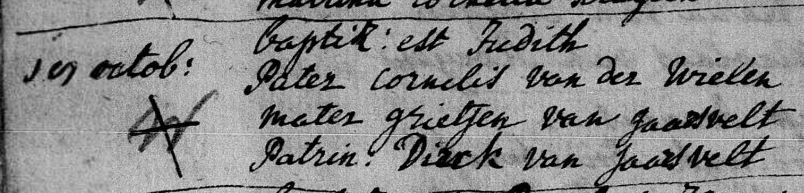 baptiz: est Judith
octob: Pater cornelis van der Wielen
mater grietjen van Jaarsvelt
Patrin: Dirck van Jaarsvelt